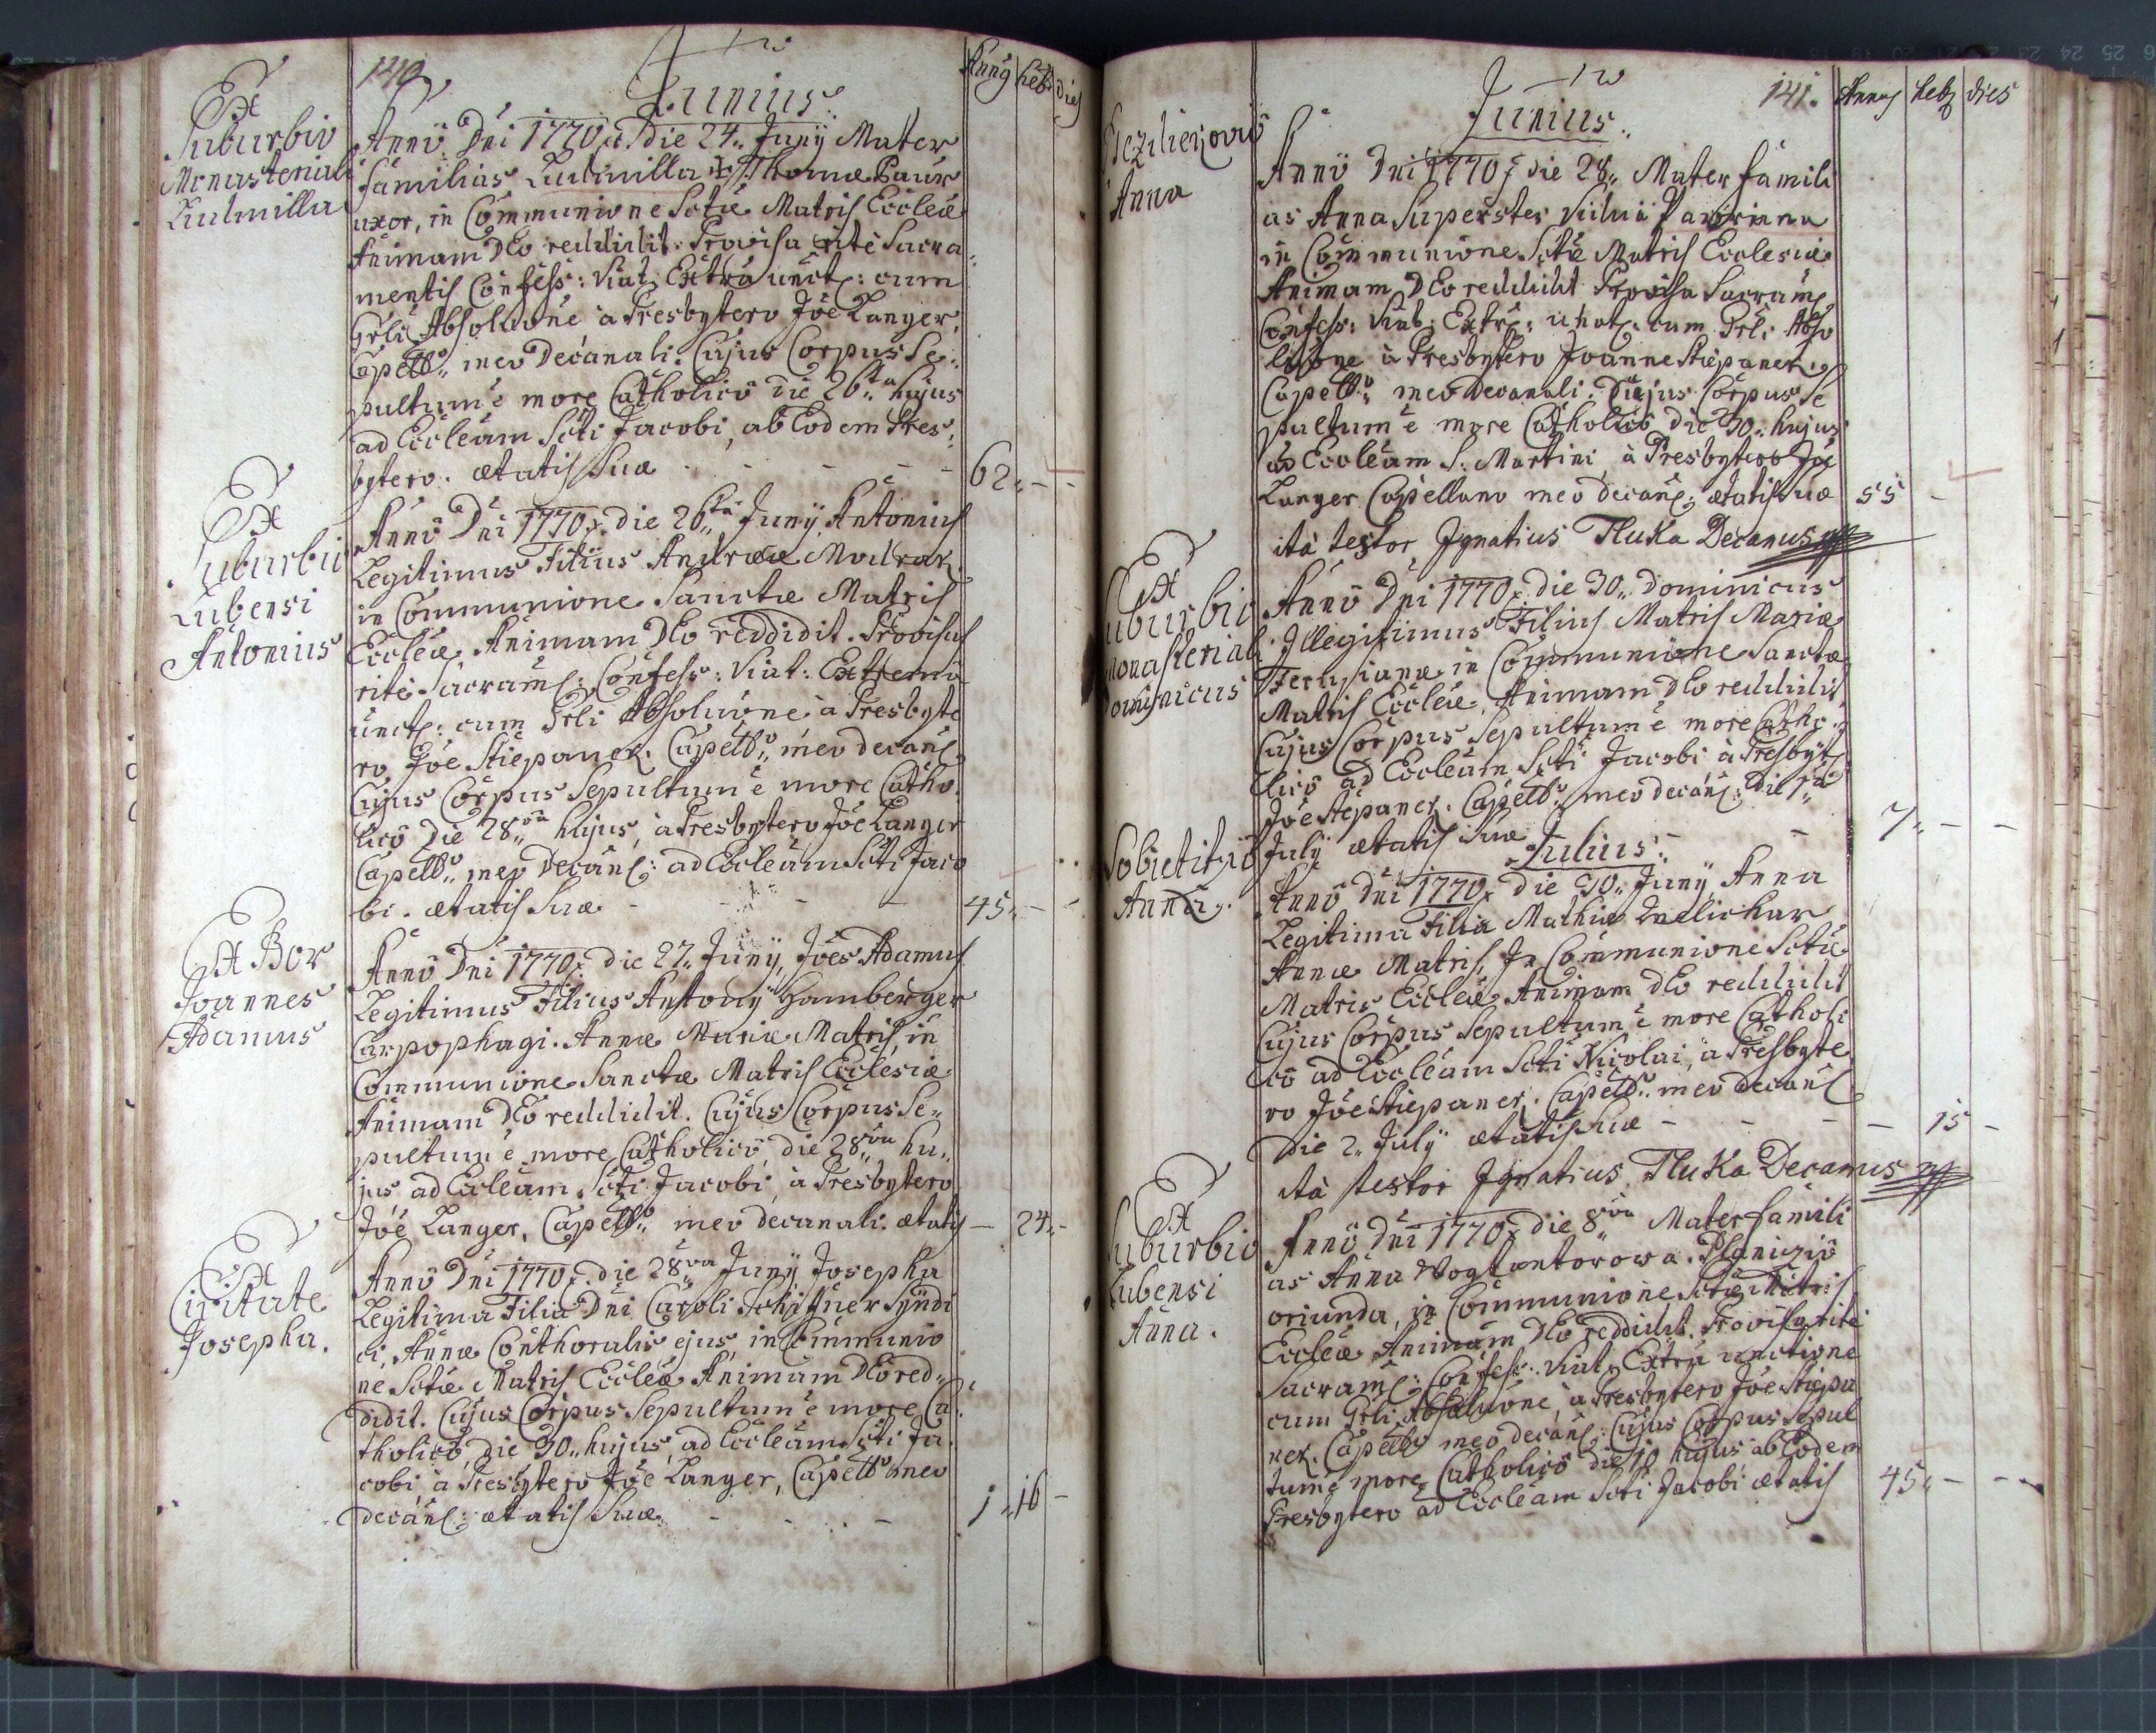 140. Annȳ heb: dies
Junius.
Ex
Suburbio
Monasteriali
Ludmilla
Anno Dni 1770. die 24. Junÿ Mater
familias Ludmilla Thomæ Paur
uxor, in Communione Sctæ Matris Eccleæ
Animam DEo reddidit. Provisa rite Sacra
mentis Confess: Viat: Extra unct: cum
Grli Absoluōne a Presbytero Joe Langer,
Capellō meo Decanali. Cujus Corpus Se-
pultum ē more Catholico die 26ta hujus
ad Eccleam Scti Jacobi, ab Eodem Pres-
bytero. ætatis Suæ - - - - 62 - -
Ex
Suburbio
Lubensi
Antonius
Anno Dni 1770. die 26ta Junÿ Antonius
Legitimus Filius Andreæ Modrak
in Communione Sanctæ Matris
Eccleæ Animam DEo reddidit. Provisus
rite Sacram: Confess: Viat: Extrema
unct: cum Grli Absoluōne a Presbyte
ro Joe Stiepanek. Capellō meo decan:
Cujus Corpus Sepultum ē more Catho-
lico die 28va hujus, a Presbytero Joe Langer
Capellō meo Decan: ad Eccleam Scti Jaco
bi. ætatis Suæ - - - 45 - -
Ex Bor
Joannes
Adamus
Anno Dni 1770. die 27. Junÿ, Joes Adamus
Legitimus Filius Antonÿ Hamberger
Carpophagi. Annæ Mariæ Matris, in
Communione Sanctæ Matris Ecclesiæ
Animam DEo reddidit. Cujus Corpus Se-
pultum ē more Catholico, die 28va hu-
jus ad Eccleam Scti Jacobi, a Presbytero
Joe Langer, Capellō meo decanali. ætatis - 24 -
Ex
Civitate
Josepha.
Anno Dni 1770. die 28va Junÿ Josepha
Legitima Filia Dni Caroli Syndi
ci, Annæ Conthoralis ejus, in Communio
ne Sctæ Matris Eccleæ Animam DEo red-
didit. Cujus Corpus Sepultum ē more Ca-
tholico, die 30. hujus, ad Eccleam Scti Ja-
cobi a Presbytero Joe Langer, Capellō meo
decan: ætatis Suæ. - - - 1. 16 -
141. Annȳ heb: dies
Junius.
Anna
Anno Dni 1770. die 28. Mater famili
as Anna Superstes Vidua
in Communione Sctæ Matris Ecclesiæ
Animam DEo reddidit Provisa Sacram:
Confess: Viat: Extr: unct: cum Grli Abso
luōne a Presbytero Joanne Stiepanek
Capellō meo Decanali. Cujus Corpus Se
pultum ē more Catholico die 30. hujus
ad Eccleam S: Martini, a Presbytero Joe
Langer Capellano meo decan: ætatis Suæ 55 -
ita testor Ignatius Tluka Decanus
Ex
Suburbio
Monasteriali
Dominicus
Anno Dni 1770. die 30. Dominicus
Illegitimus Filius Matris Mariæ
in Communione Sanctæ
Matris Eccleæ, Animam DEo reddidit
Cujus Corpus Sepultum ē more Catho-
lico ad Eccleam Scti Jacobi a Presbyt:
Joe Stepanek. Capellō meo decan: Die 1a
Julÿ ætatis Suæ - - 7. - -
Julius.
Sobietitz
Anna.
Anno Dni 1770. die 30. Junÿ Anna
Legitima Filia Mathiæ Knelichar
Annæ Matris, In Communione Sctæ
Matris Eccleæ Animam DEo reddidit
Cujus Corpus Sepultum ē more Catholi
co ad Eccleam Scti Nicolai, a Presbyte
ro Joe Stiepanek. Capellō meo decan:
Die 2. Julÿ ætatis Suæ - - - 15 -
ita testor Ignatius Tluka Decanus
Ex
Suburbio
Lubensi
Anna.
Anno Dni 1770. die 8va Mater famili
as Anna Vogtantorowa.
oriunda, in Communione Sctæ Matris
Eccleæ Animam DEo reddidit. Provisa rite
Sacram: Confess: Viat: Extra unctione
cum Grli Absoluōne, a Presbytero Joe Stiepa
nek. Capellō meo decan: Cujus Corpus Sepul
tum ē more Catholico die 10 hujus ab Eodem
Presbytero ad Eccleam Scti Jacobi ætatis 45 - -